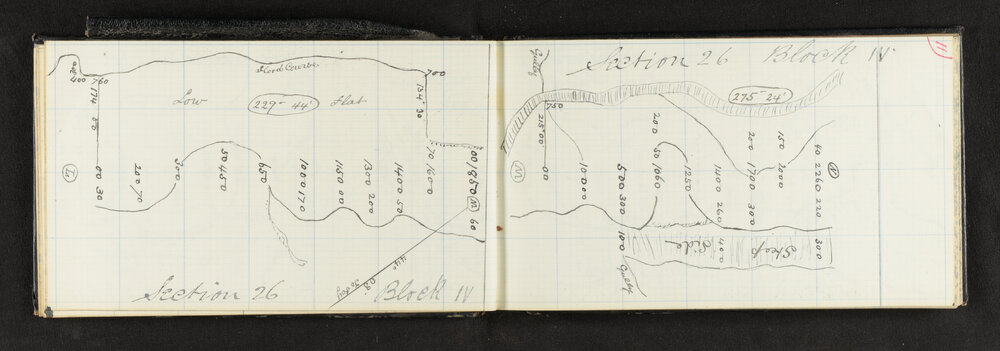 400 760
Flood Course
700
174 80
Low
229° 44'
Flat
134° 30
L
00 30
200 70
300
50 450
650
1000 170
1150 00
1300 200
1400 50
70 1600
00 1850
M
60
Section 26
Block IV
Gulley
Section 26
Block IV
11
750
215° 00
275° 24'
M
00
1000
500 300
200
50 1060
1250
1400 260
200
1700 300
150
2000
40 2260 220
N
100
Gulley
Side
400
Steep
300